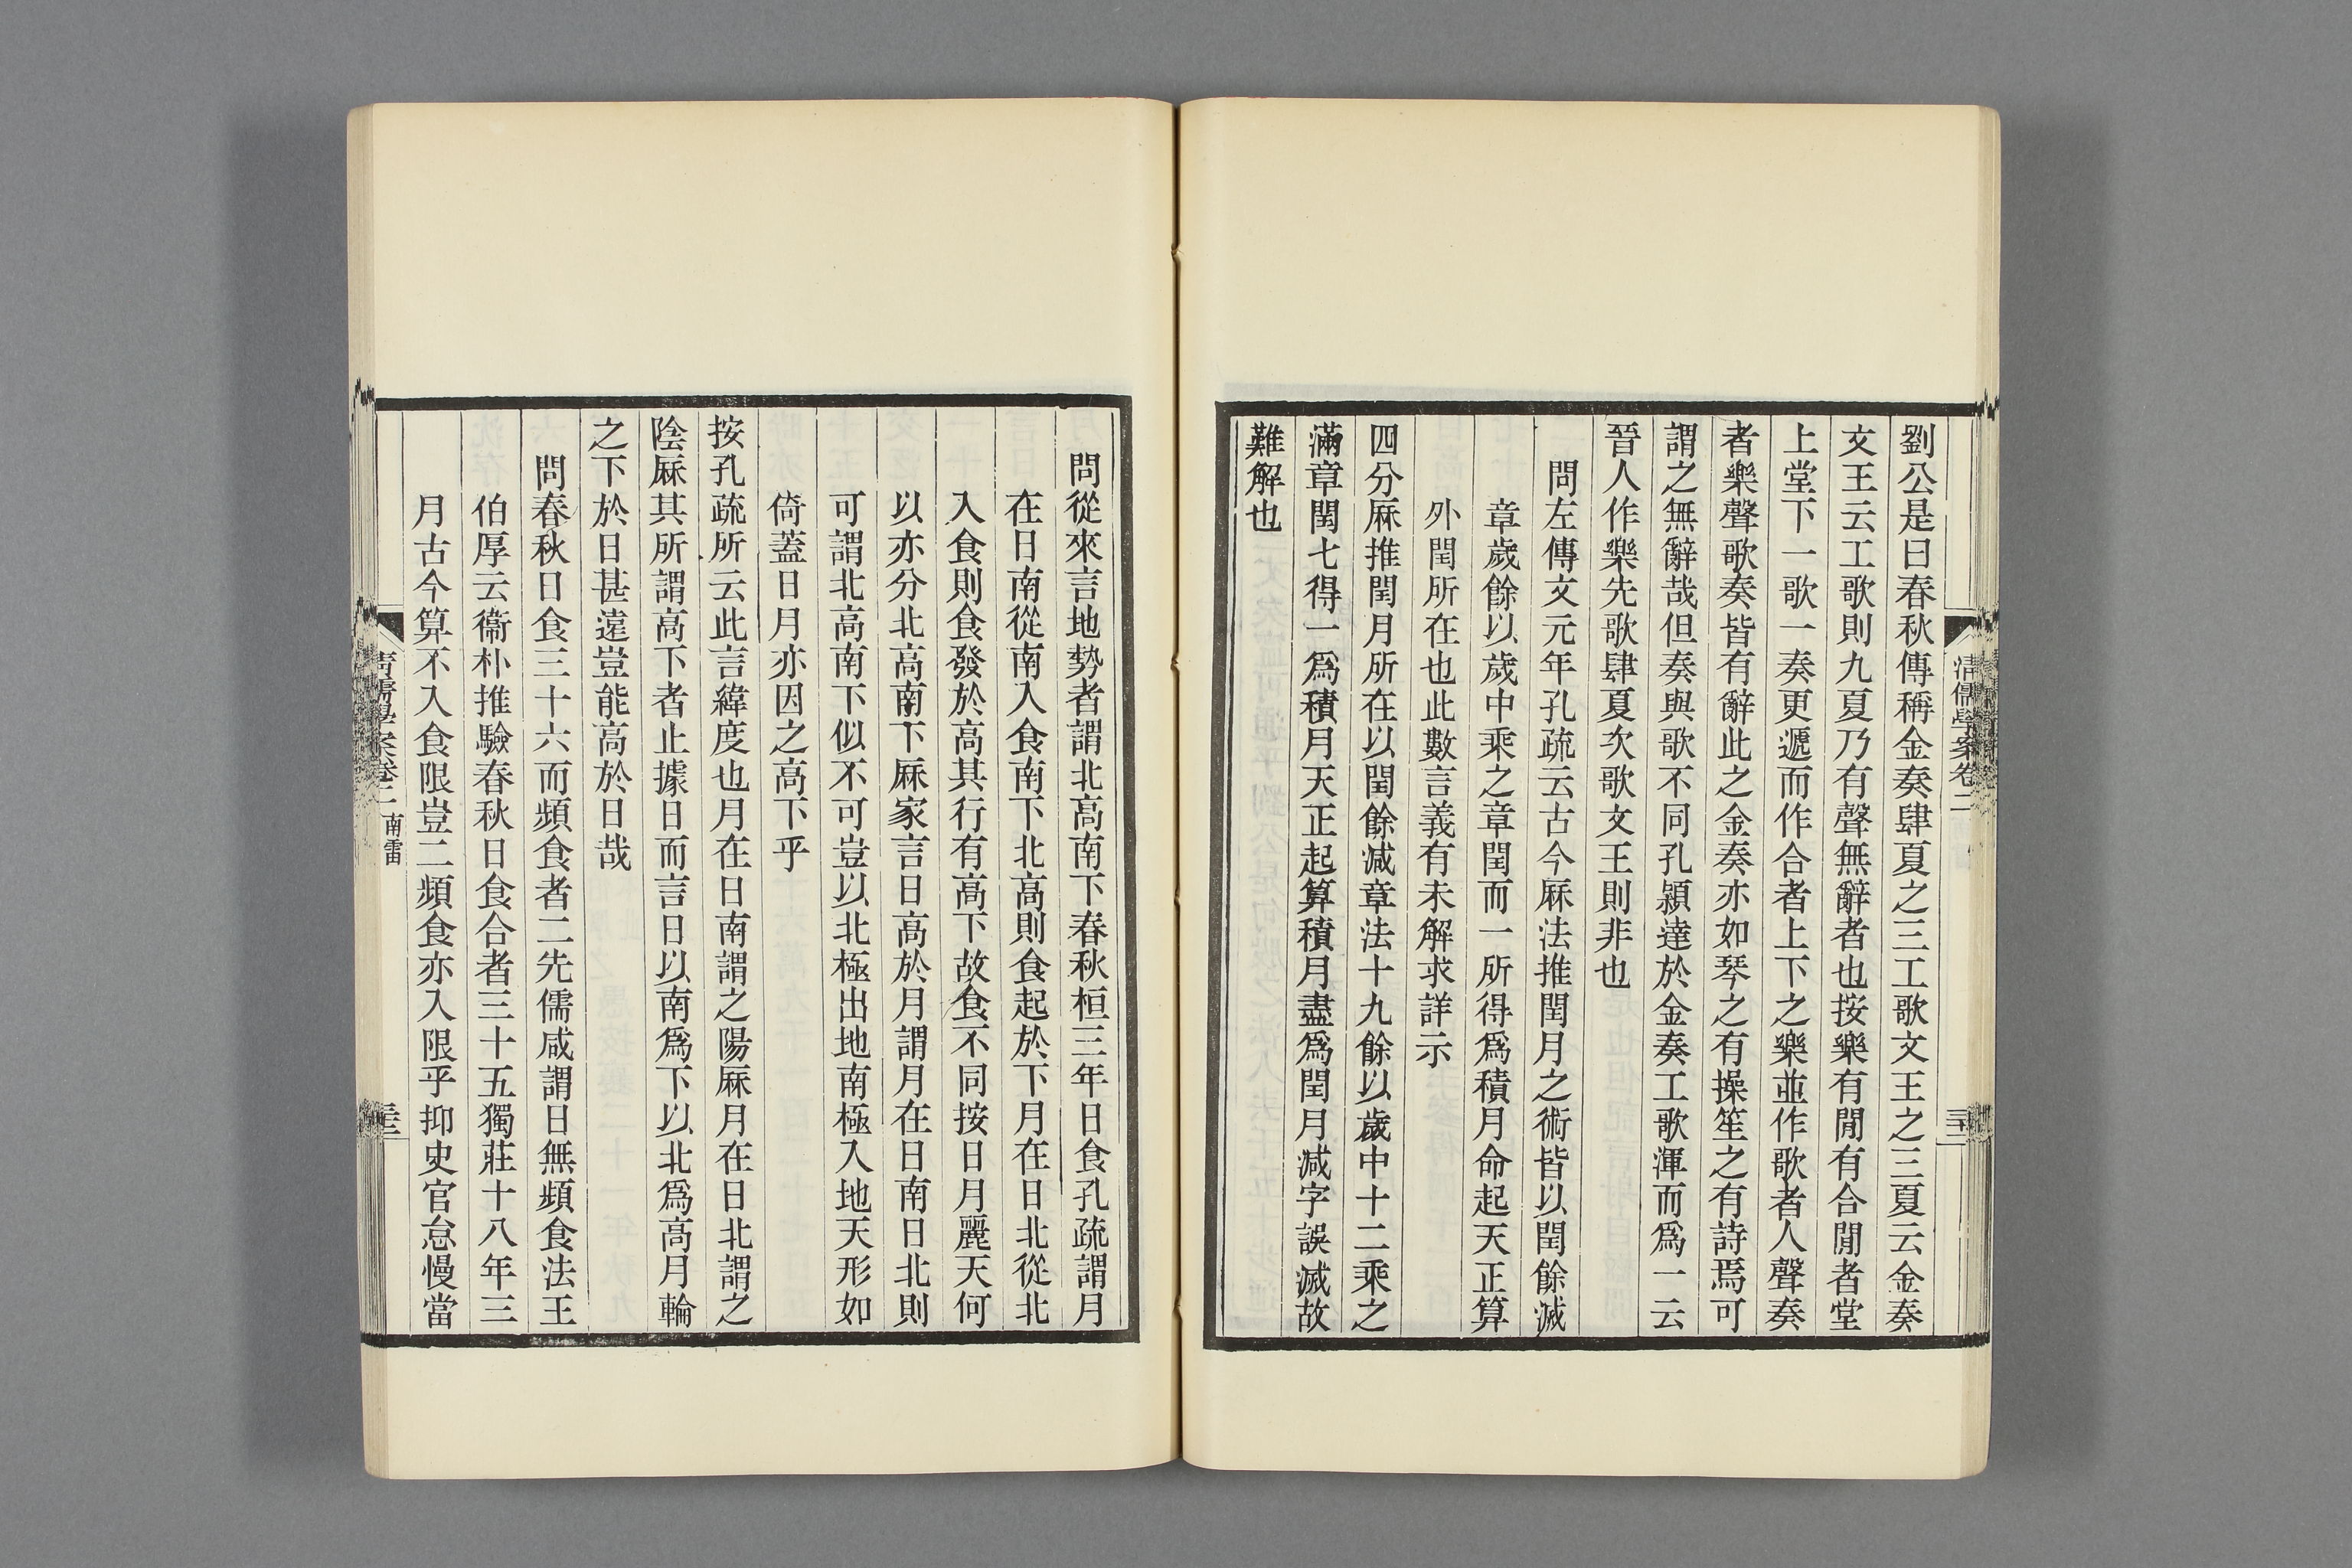 劉公是曰春秋傳稱金奏肆夏之三工歌文王之三夏云金奏
文王云工歌則九夏乃有聲無辭者也按樂有閒有合閒者堂
上堂下一歌一奏更遞而作合者上下之樂並作歌者人聲奏
者樂聲歌奏皆有辭此之金奏亦如琴之有操笙之有詩焉可
謂之無辭哉但奏與歌不同孔潁達於金奏工歌渾而爲一云
晉人作樂先歌肆夏次歌文王則非也
問左傳文元年孔疏云古今厤法推閏月之術皆以閏餘減
章歲餘以歲中乘之章閏而一所得爲積月命起天正算
外閏所在也此數言義有未解求詳示
四分厤推閏月所在以閏餘減章法十九餘以歲中十二乘之
滿章閏七得一爲積月天正起算積月盡爲閏月減字誤滅故
難解也
清儒學案卷二
三十二
問從來言地勢者謂北高南下春秋桓三年日食孔疏謂月
在日南從南入食南下北高則食起於下月在日北從北
入食則食發於高其行有高下故食不同按日月麗天何
以亦分北高南下厤家言日高於月謂月在日南日北則
可謂北高南下似不可豈以北極出地南極入地天形如
倚蓋日月亦因之高下乎
按孔疏所云此言緯度也月在日南謂之陽厤月在日北謂之
陰厤其所謂高下者止據日而言日以南爲下以北爲高月輪
之下於日甚遠豈能高於日哉
問春秋日食三十六而頻食者二先儒咸謂日無頻食法王
伯厚云衞朴推驗春秋日食合者三十五獨莊十八年三
月古今算不入食限豈二頻食亦入限乎抑史官怠慢當
清儒學案卷二
南雷
三十三